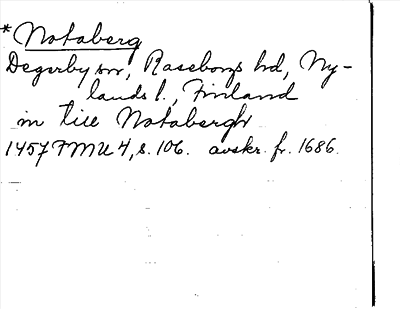 * Notaberg
Degerby sn, Raseborgs hd, Ny-
lands l., Finland
in tiil Notabergh
1457 FMU 4, s. 106. avskr. fr. 1686.